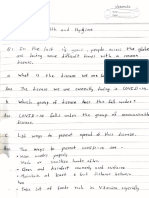 Health and Hygiene
Q1 In the last 2 years, people across the globe
are facing some difficult times with a common
disease.
a. What is the disease we are
Ans The disease we are currently facing is COVID-19.
b. Which group of disease does this fall under?
Ans COVID-19 falls under the group of communicable
disease.
c. List ways to prevent spread of this disease.
Ans Ways to prevent COVID-19 are :-
• Wash hands properly
• Mask or sanitise hands often.
• Clean and disinfect commonly used surfaces
• Maintain at least 6 feet distance between
two.
• Take lot of foods rich in Vitamins, especially